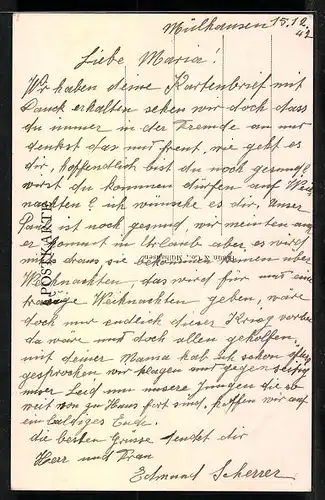 Mülhausen 15.12.
42
Liebe Maria!
Wir haben deine Kartenbrief mit
Danck erhalten sehen wir doch dass
du immer in der Fremde an uns
denkst das uns freut, wie geht es
dir, hoffendlich bist du noch gesund?
wirst du kommen dürfen auf Wei
nachten? ich wünsche es dir, unser
Paul ist noch gesund, wir meinten auch
er kommt in Urlaub aber es wird
nichts draus, sie bekommen keinen über
Weihnachten, das wird für uns eine
traurige Weihnachten geben, wäre
doch nur endlich dieser Krieg vorbei
da wäre uns doch allen geholfen.
mit deiner Mama hab ich schon oft
gesprochen wir klagen uns gegenseitig
unser Leid um unsere Jungen die so
weit von zu Haus fort sind, hoffen wir auf
ein baldiges Ende.
die besten Grüsse sendet dir
Herr und Frau
Edmund Scherrer
POSTKARTE